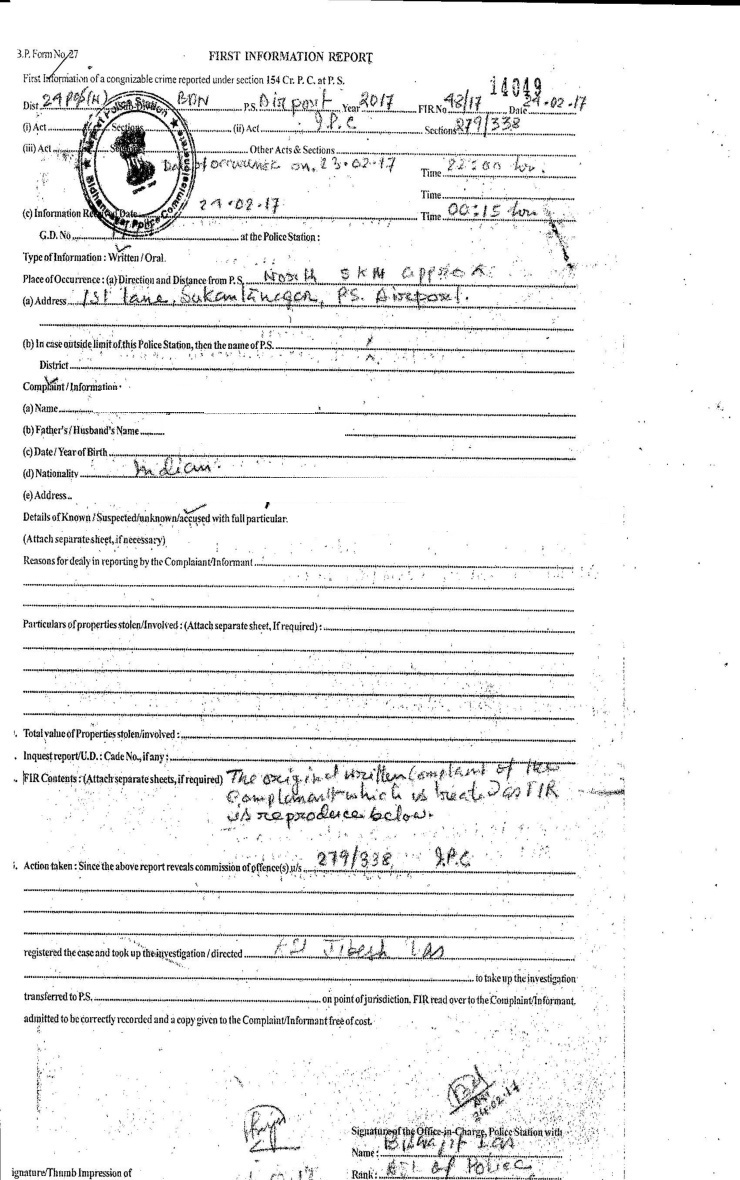 3.P. Form No. 27
FIRST INFORMATION REPORT
First Information of a congnizable crime reported under section 154 Cr. P. C. at P. S.
14049
Dist 24 PGS(N) BDN P.S. Airport Year 2017 FIR No 48/17 Date 24-02-17
(i) Act Sections (ii) Act I.P.C Sections 279/338
(iii) Act Other Acts & Sections
Date of occurrence on, 23-02-17 Time 22:00 hr.
Time
(c) Information Date 24-02-17 Time 00:15 hrs
G.D. No at the Police Station :
Type of Information : Written / Oral.
Place of Occurrence : (a) Direction and Distance from P.S. North 5 KM approx.
(a) Address 1st lane, Sukantanagar, P.S. Aireport.
(b) In case outside limit of this Police Station, then the name of P.S. x
District x
Complaint / Information
(a) Name
(b) Father's / Husband's Name
(c) Date / Year of Birth
(d) Nationality Indian
(e) Address
Details of Known / Suspected/unknown/accused with full particular.
(Attach separate sheet, if necessary)
Reasons for dealy in reporting by the Complaiant/Informant
Particulars of properties stolen/Involved : (Attach separate sheet, If required) :
Total value of Properties stolen/involved :
Inquest report/U.D. : Cade No., if any :
FIR Contents : (Attach separate sheets, if required) The original written Complaint of the
Complainant which is treated as FIR
is reproduce below.
Action taken : Since the above report reveals commission of offence(s) u/s 279/338 I.P.C
registered the case and took up the investigation / directed ASI Jibesh Das
to take up the investigation
transferred to P.S. on point of jurisdiction. FIR read over to the Complaint/Informant,
admitted to be correctly recorded and a copy given to the Complaint/Informant free of cost.
24-02-17
Signature of the Office-in-Charge, Police Station with
Name : Biswajit Das
ignature/Thumb Impression of
Rank : ASI of Police
Airport Police Station
Bidhannagar Police Commissionerate